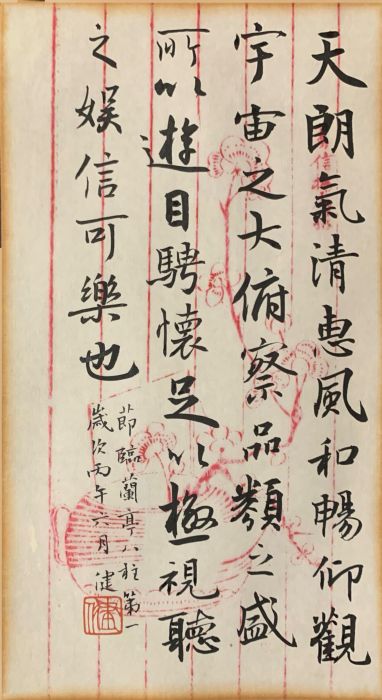 天朗氣清惠風和暢仰觀
宇宙之大俯察品類之盛
所以遊目騁懷足以極視聽
之娛信可樂也
節臨蘭亭八柱第一
歲次丙午六月健